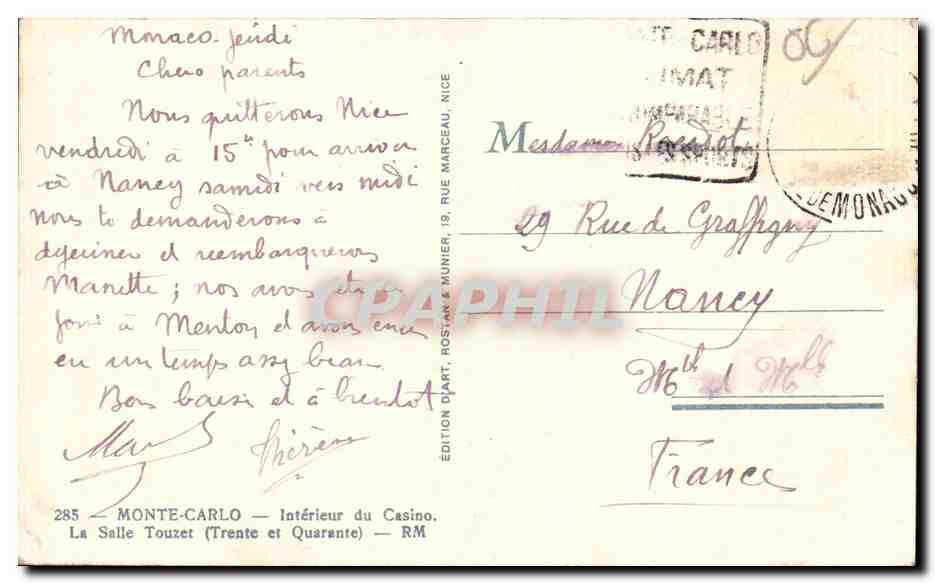 Monaco Jeudi
Chers parents
Nous quitterons Nice
vendredi à 15h pour arriver
à Nancy samedi vers midi
nous te demanderons à
dejeuner et reembarquerons
Manette ; nos avons été
à Menton et avons
eu un temps assez beau
Bons baisers et à bientôt
Thérèse
285 — MONTE-CARLO — Intérieur du Casino.
La Salle Touzet (Trente et Quarante) — RM
ÉDITION D'ART, ROSTAN & MUNIER, 19, RUE MARCEAU, NICE
CARLO
IMAT
SPORTS
DE MONACO
06
Mesdames
29 Rue de Graffigny
Nancy
Mthe et Mlle
France
CPAPHIL